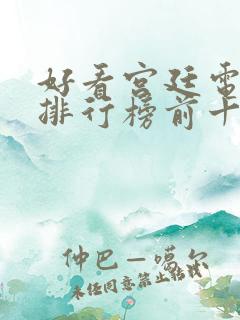 好看宫廷电
排行榜前十
仲巴—噶尔
未经同意禁止转载